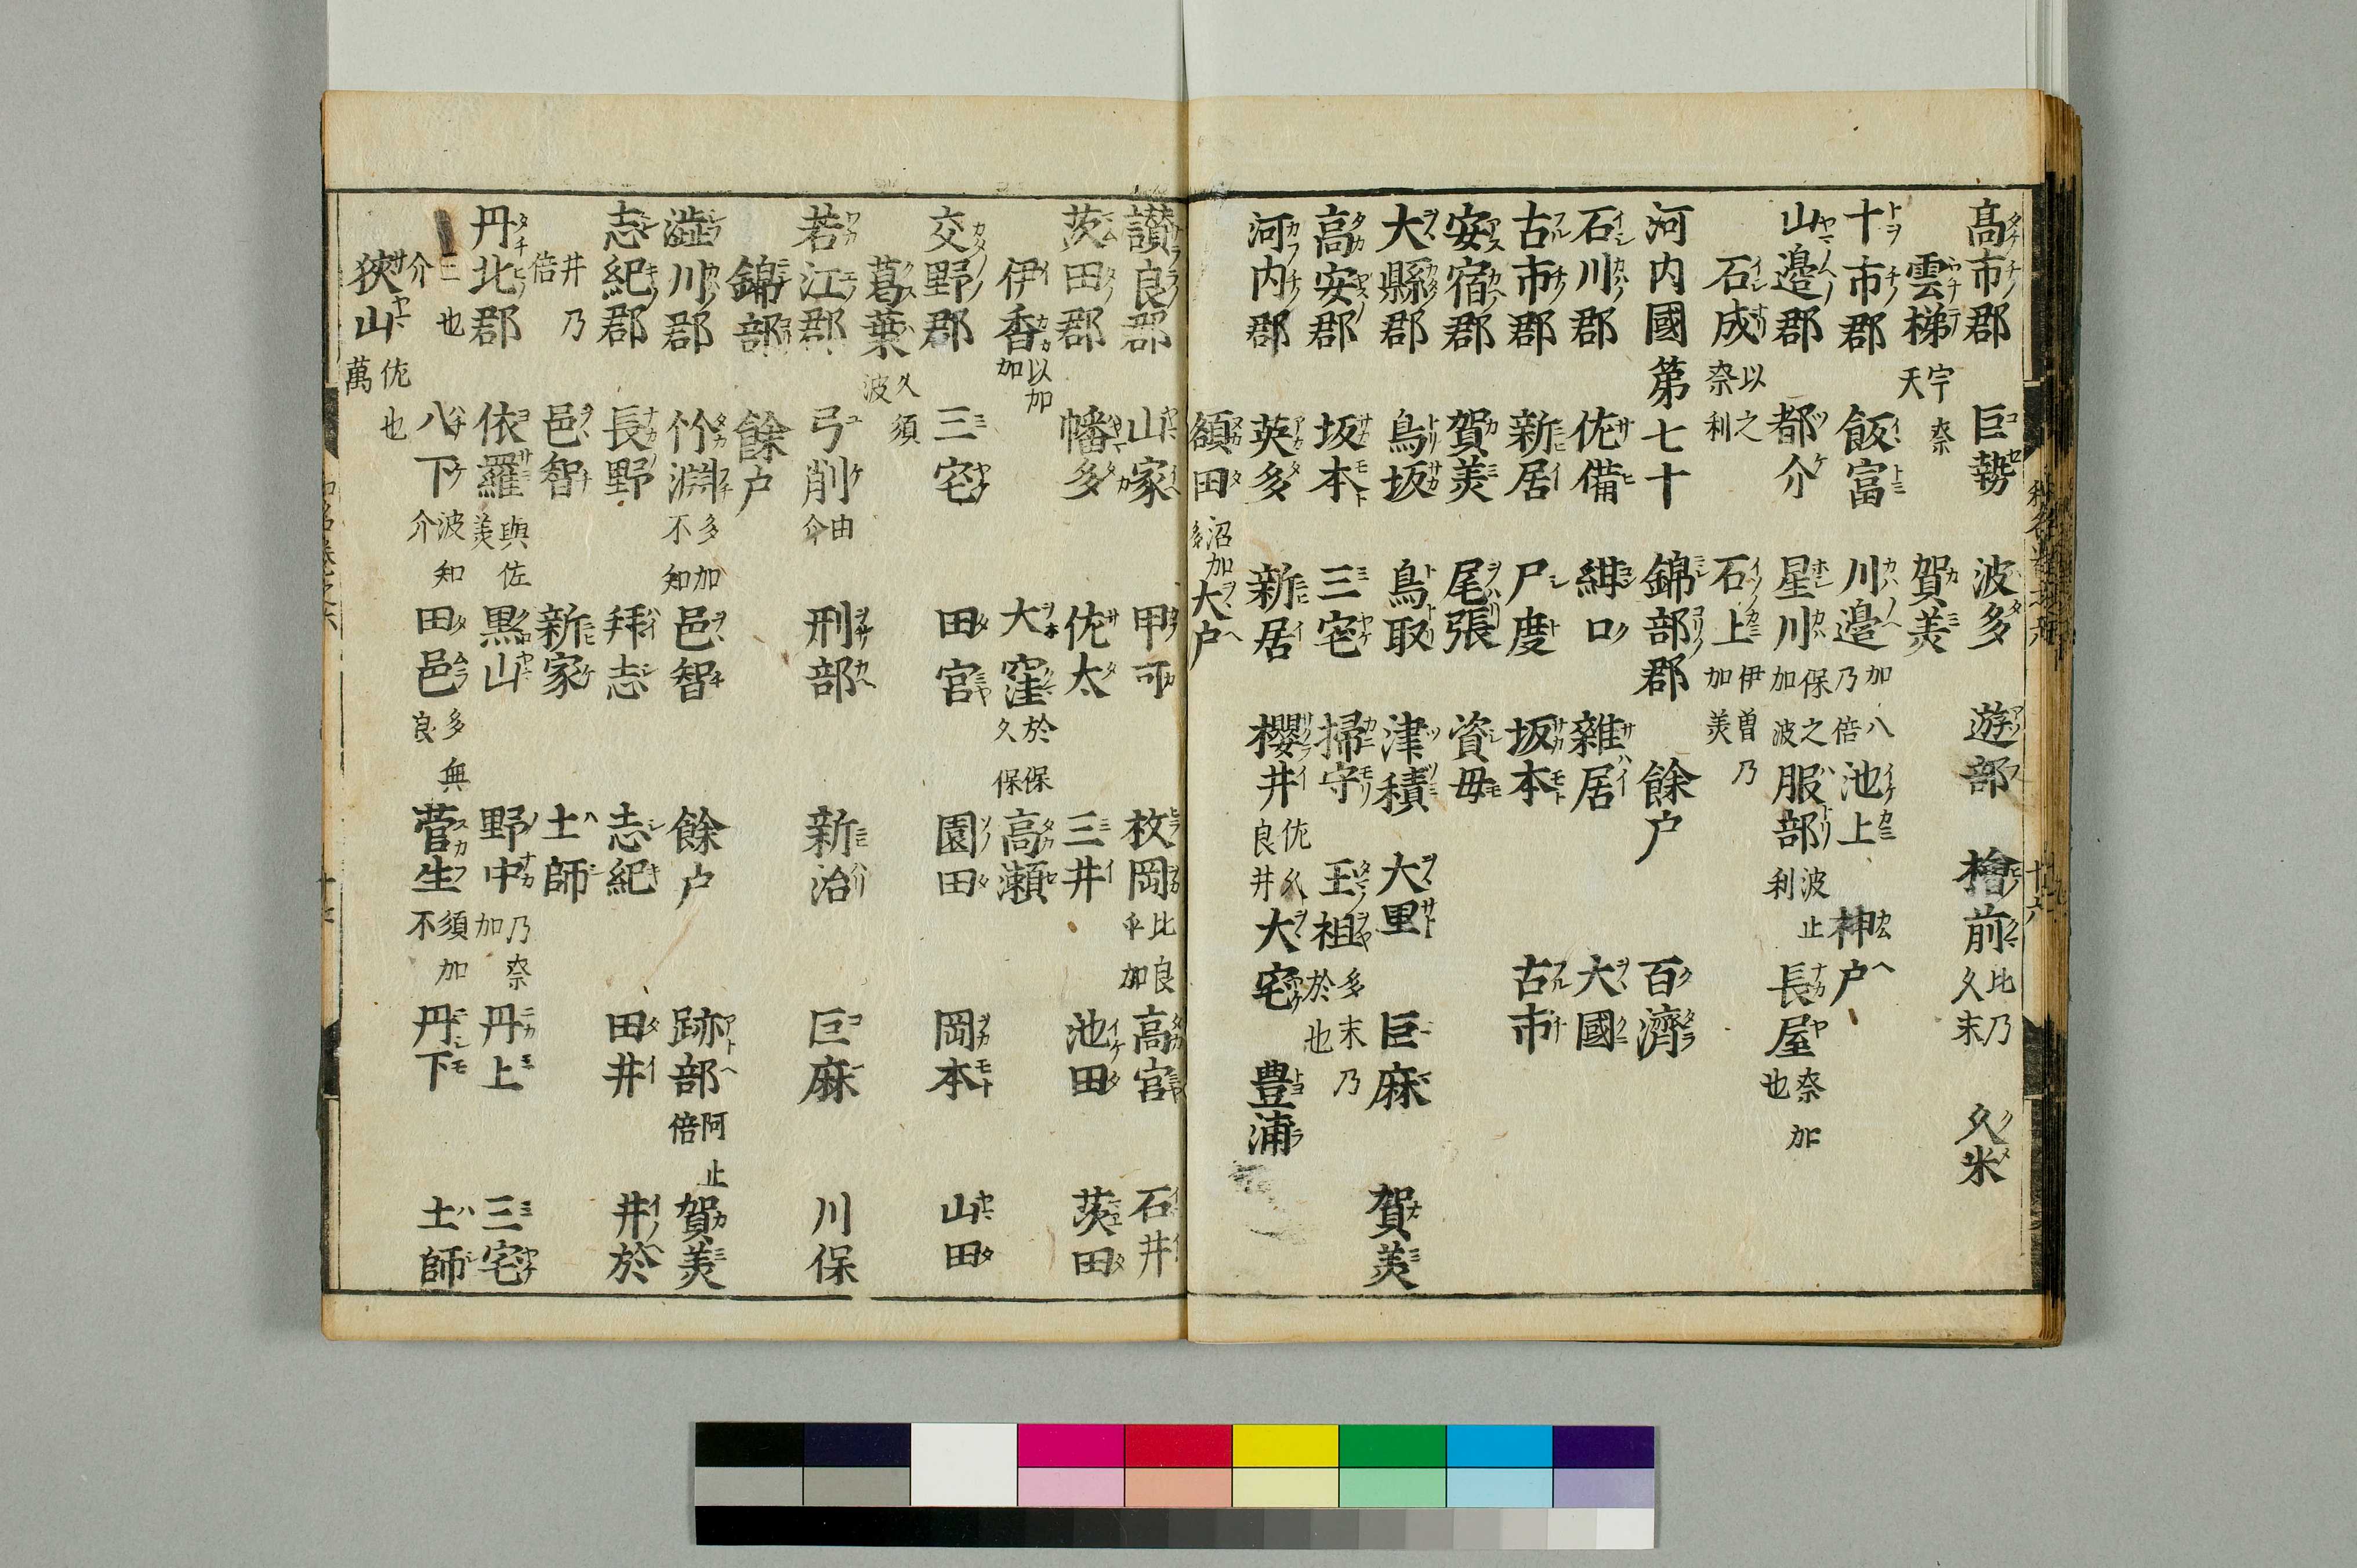 高市郡 巨勢 波多 遊部 檜前 比乃久末 久米
雲梯 宇奈天 賀美
十市郡 飯富 川邉 加八乃倍 池上 神户
山邉郡 都介 星川 保之加波 服部 波止利 長屋 奈加也
石成 以之奈利 石上 伊曽乃加美
河内國第七十
錦部郡 餘户 百濟
石川郡 佐備 紺口 雜居 大國
古市郡 新居 尸度 坂本 古市
安宿郡 賀美 尾張 資母
大縣郡 鳥坂 鳥取 津積 大里 巨麻 賀美
高安郡 坂本 三宅 掃守 玉祖 多末乃於也
河内郡 英多 新居 櫻井 佐久良井 大宅 豊浦
額田 沼加多 大户
讃良郡 山家 甲可 枚岡 比良乎加 高宮 石井
茨田郡 幡多 佐太 三井 池田 茨田
伊香 以加加 大窪 於保久保 高瀬
交野郡 三宅 田宮 園田 岡本 山田
葛葉 久須波
若江郡 弓削 由介 刑部 新治 巨麻 川保
錦部 餘户
澁川郡 竹淵 多加不知 邑智 餘户 跡部 阿止倍 賀美
志紀郡 長野 拜志 志紀 田井 井於
井乃倍 邑智 新家 土師
丹北郡 依羅 與佐美 黒山 野中 乃奈加 丹上 三宅
三也介 八下 波知介 田邑 多無良 菅生 須加不 丹下 土師
狹山 佐也萬